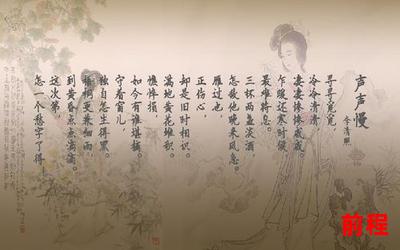 声声慢
李清照
寻寻觅觅
冷冷清清,
凄凄惨惨戚戚。
乍暖还寒时候
最难将息。
三杯两盏淡酒,
怎敌他晚来风急。
雁过也,
正伤心,
却是旧时相识。
满地黄花堆积。
憔悴损,
如今有谁堪摘。
守着窗儿
独自怎生得黑。
梧桐更兼细雨,
到黄昏点点滴滴。
这次第,
怎一个愁字了得
前程